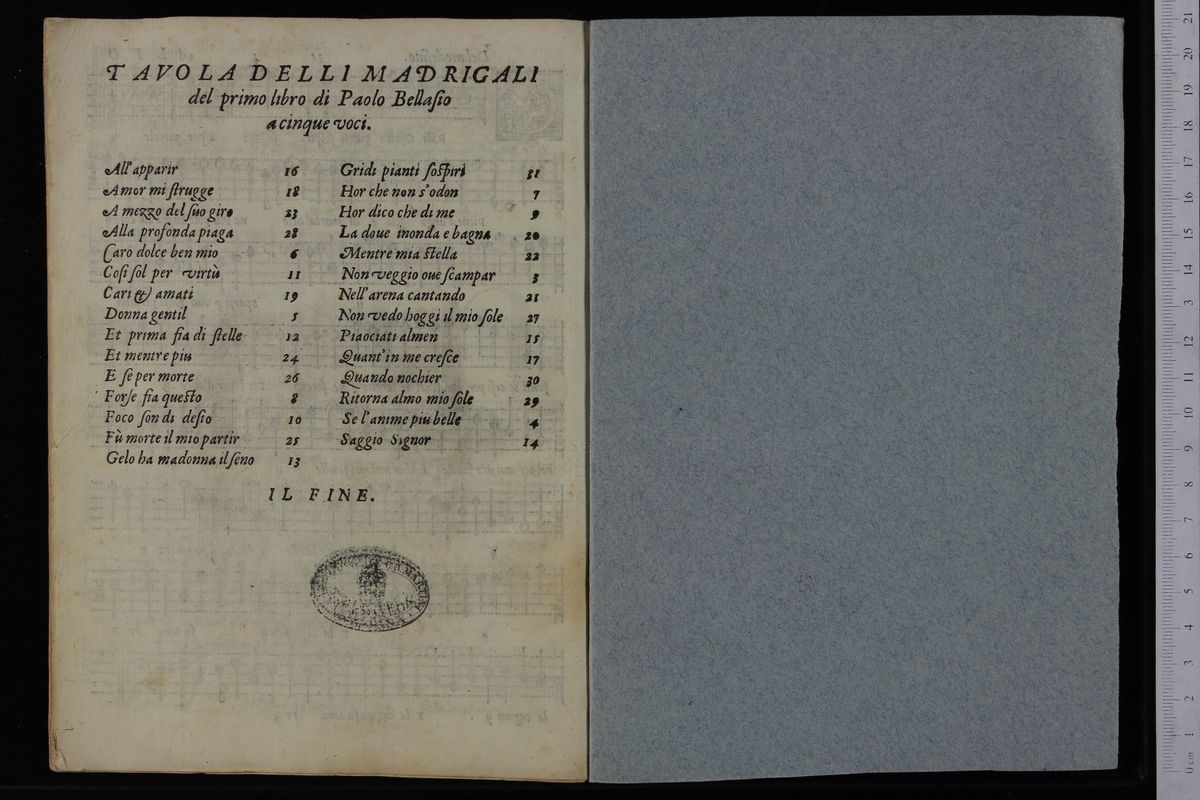 TAVOLA DELLI MADRIGALI
del primo libro di Paolo Bellaſio
a cinque voci.
All'apparir 16
Amor mi ſtrugge 18
A mezzo del ſuo giro 23
Alla profonda piaga 28
Caro dolce ben mio 6
Coſi ſol per virtù 11
Cari & amati 19
Donna gentil 5
Et prima fia di ſtelle 12
Et mentre piu 24
E ſe per morte 26
Forſe fia queſto 8
Foco ſon di deſio 10
Fù morte il mio partir 25
Gelo ha madonna il ſeno 13
Gridi pianti ſoſpiri 31
Hor che non s'odon 7
Hor dico che di me 9
La doue inonda e bagna 20
Mentre mia ſtella 22
Non veggio oue ſcampar 3
Nell'arena cantando 21
Non vedo hoggi il mio ſole 27
Piaociati almen 15
Quant'in me creſce 17
Quando nochier 30
Ritorna almo mio ſole 29
Se l'anime piu belle 4
Saggio Signor 14
IL FINE.
0 cm 1 2 3 4 5 6 7 8 9 10 11 12 13 14 15 16 17 18 19 20 21